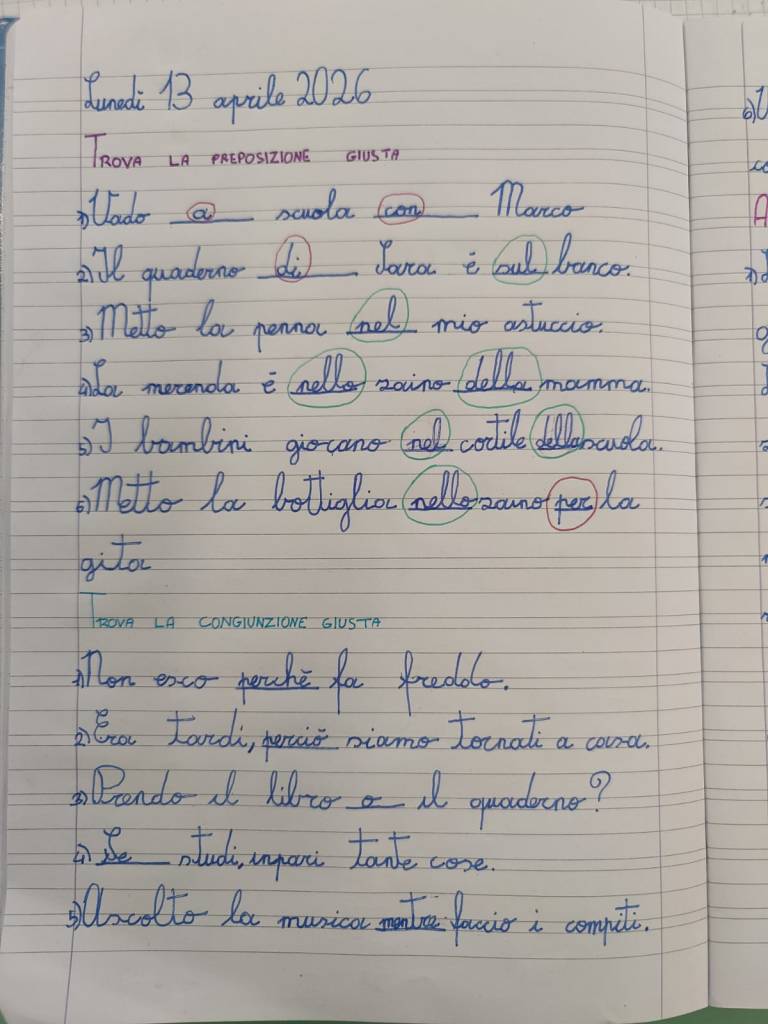 Lunedì 13 aprile 2026
TROVA LA PREPOSIZIONE GIUSTA
1) Vado a scuola con Marco
2) Il quaderno di Sara è sul banco.
3) Metto la penna nel mio astuccio.
4) La merenda è nello zaino della mamma.
5) I bambini giocano nel cortile della scuola.
6) Metto la bottiglia nello zaino per la
gita
TROVA LA CONGIUNZIONE GIUSTA
1) Non esco perchè fa freddo.
2) Era tardi, perciò siamo tornati a casa.
3) Prendo il libro o il quaderno?
4) Se studi, impari tante cose.
5) Ascolto la musica mentre faccio i compiti.
6)
A